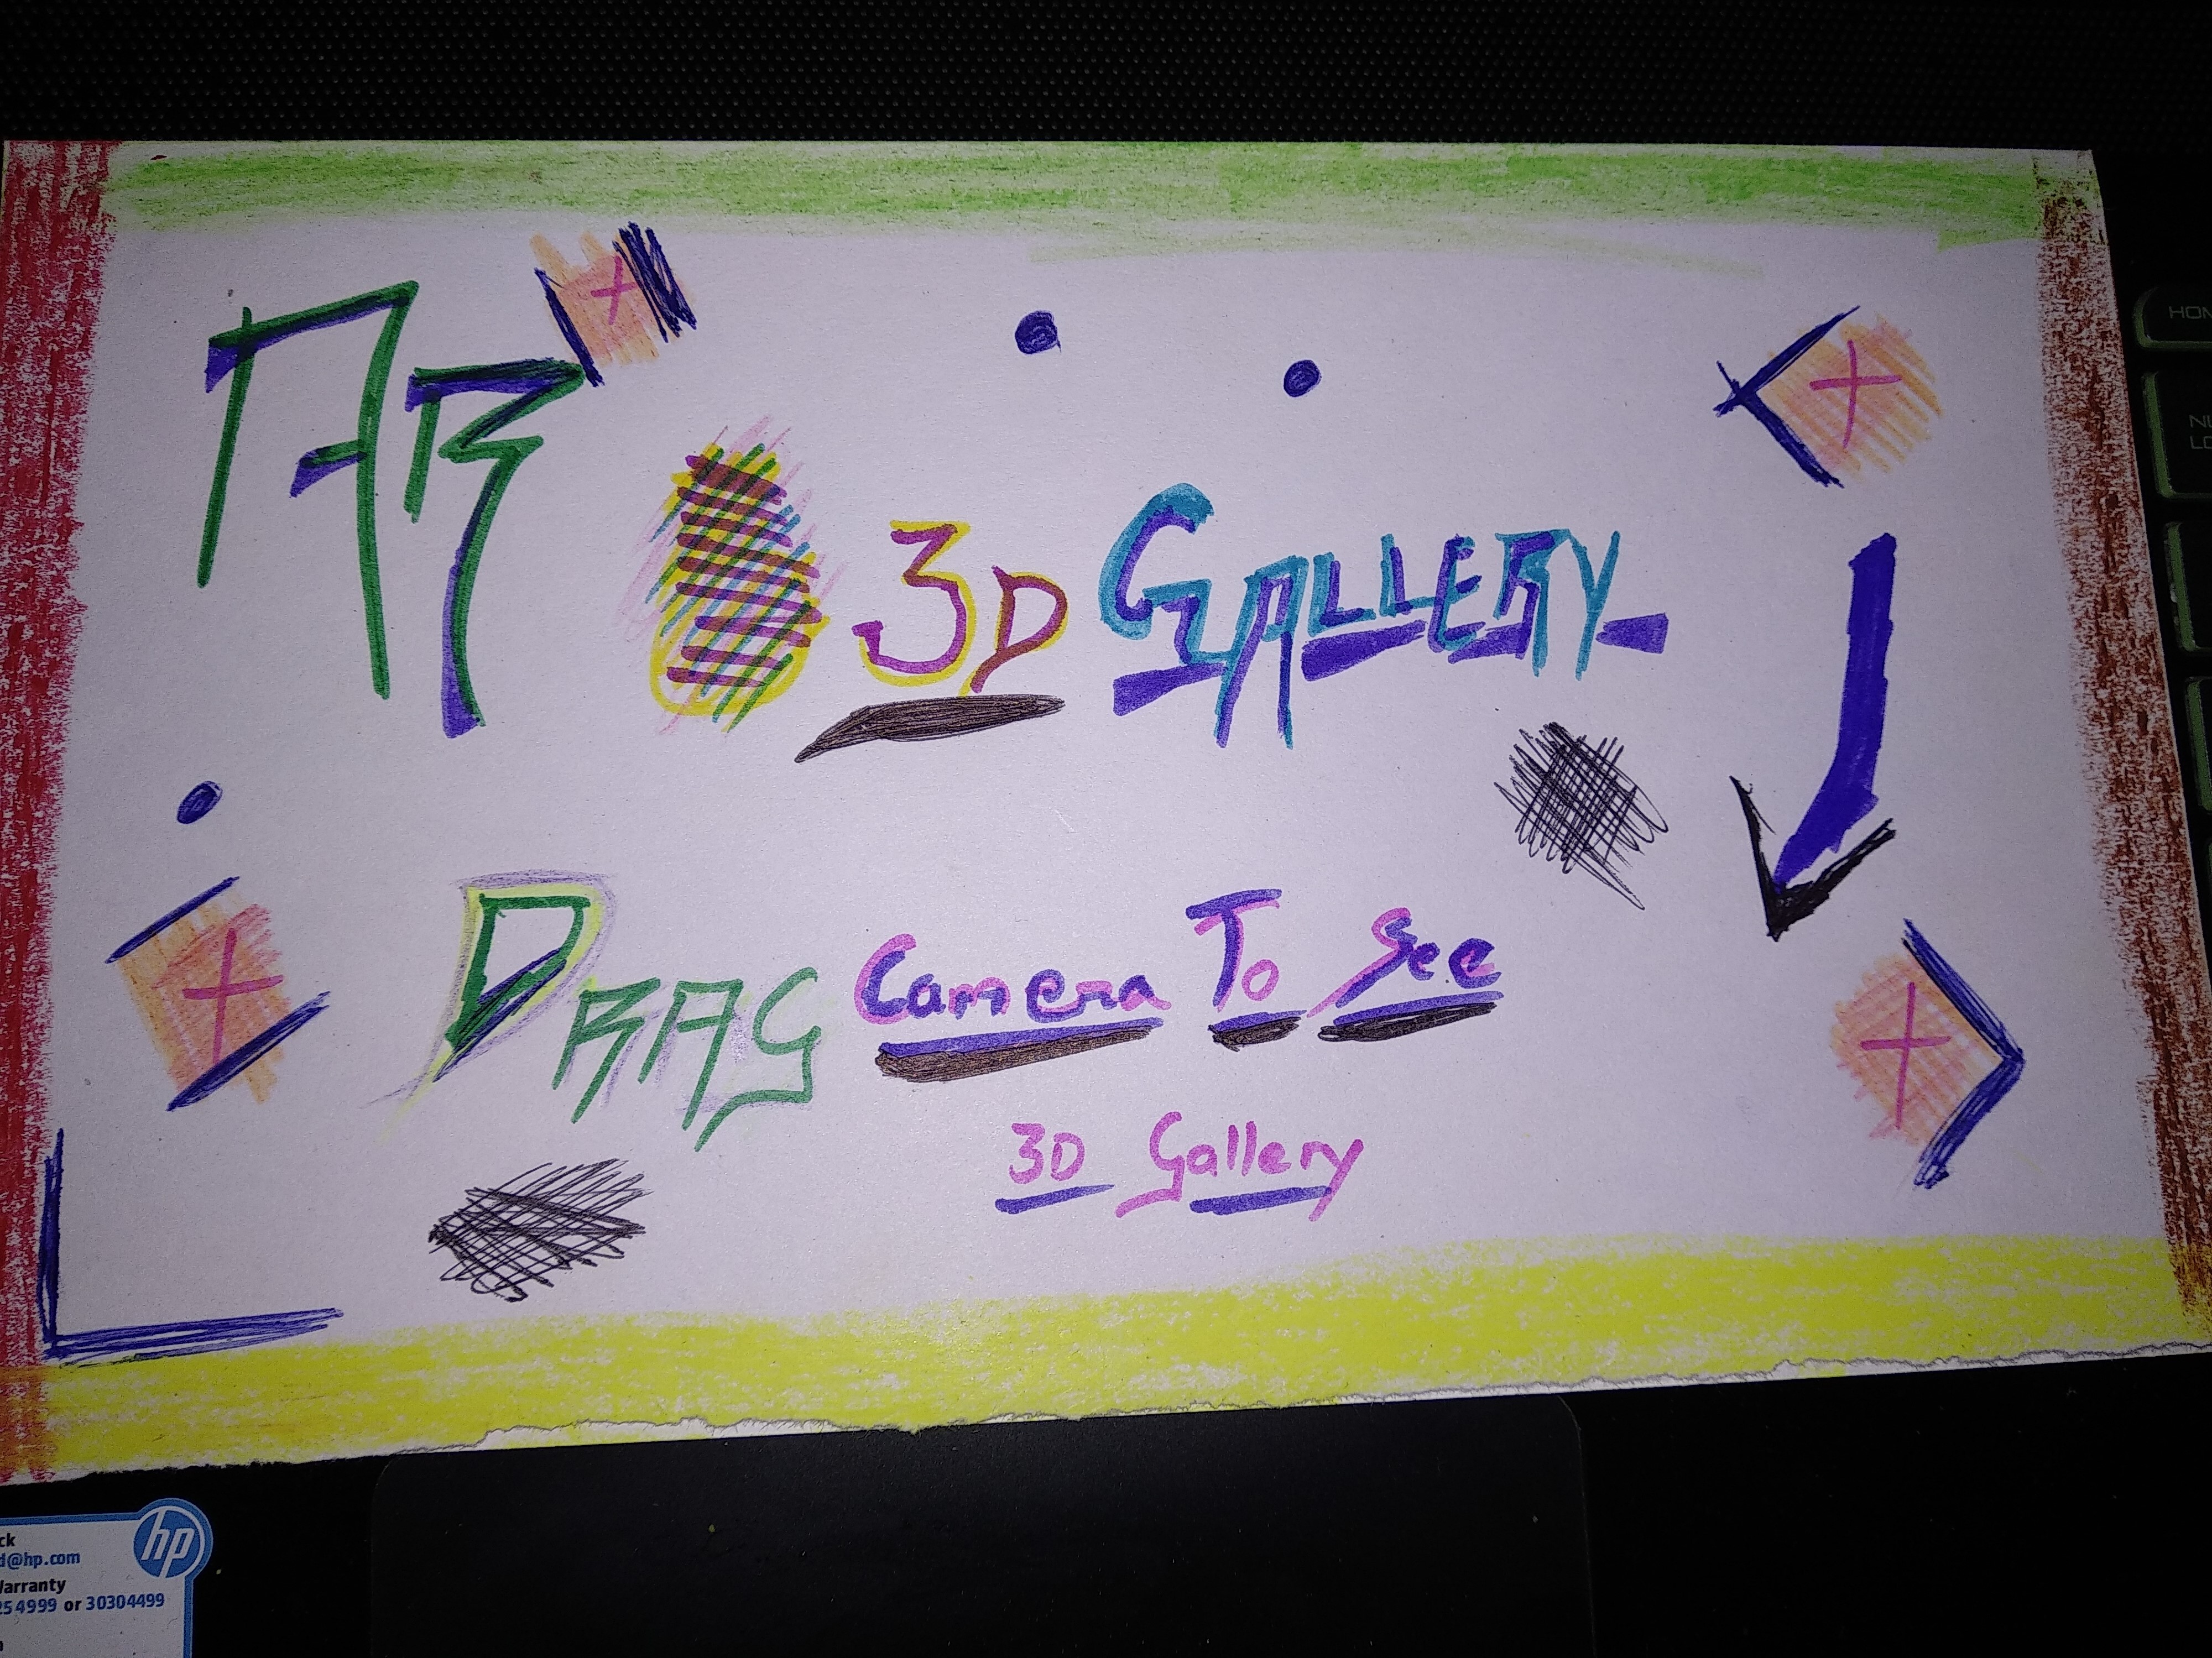 AR
3D GALLERY
DRAG Camera To See
3D Gallery
HOM
hp
ck
d@hp.com
Warranty
254999 or 30304499